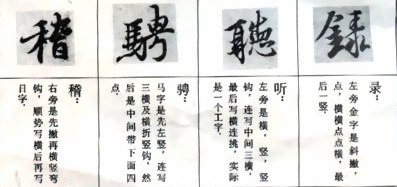 稽 騁 聽 錄
录：
左旁金字是斜撇，
点，横横点点横，最
后一竖。
听：
左旁是横，竖，竖
钩，连写中间三横，
最后写横连挑，实际
是一个工字。
骋：
马字是先左竖，连写
三横及横折竖钩，然
后是中间带下面四
点。
稽：
右旁是先撇再横竖弯
钩，顺势写横后再写
日字。